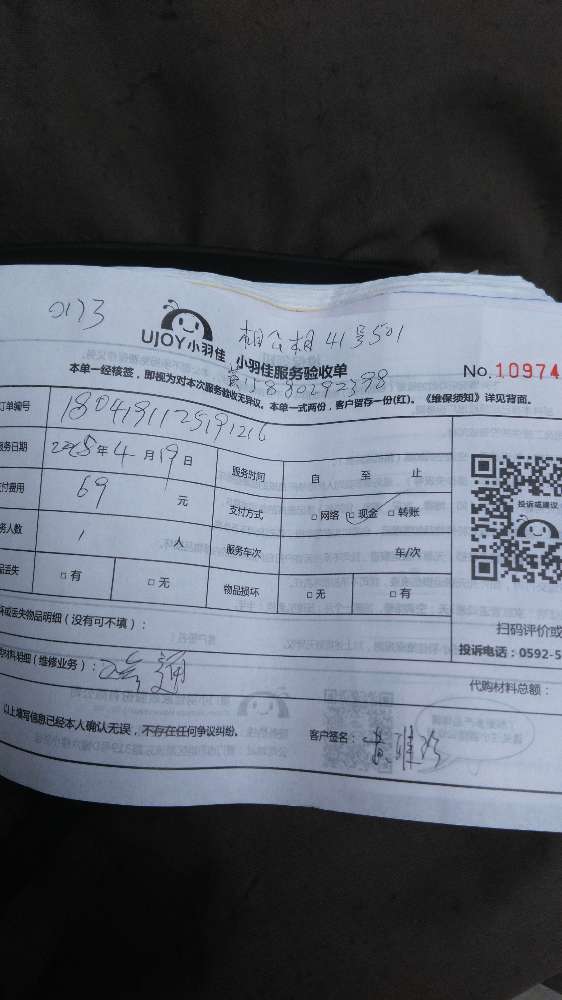 0173
UJOY小羽佳
相公相41号501
小羽佳服务验收单
No.10974
黄 15880292398
本单一经核签，即视为对本次服务验收无异议。本单一式两份，客户留存一份(红)。《维保须知》详见背面。
订单编号 1804191125191216
服务日期 2025年4月19日 服务时间 自 至 止
付费用 69 元 支付方式 □网络 □现金 □转账
务人数 1 人 服务车次 车/次
品丢失 □有 □无 物品损坏 □无 □有
投诉或建议
扫码评价或
坏或丢失物品明细（没有可不填）：
投诉电话：0592-5
材料明细（维修业务）：
代购材料总额：
以上填写信息已经本人确认无误，不存在任何争议纠纷。
客户签名：